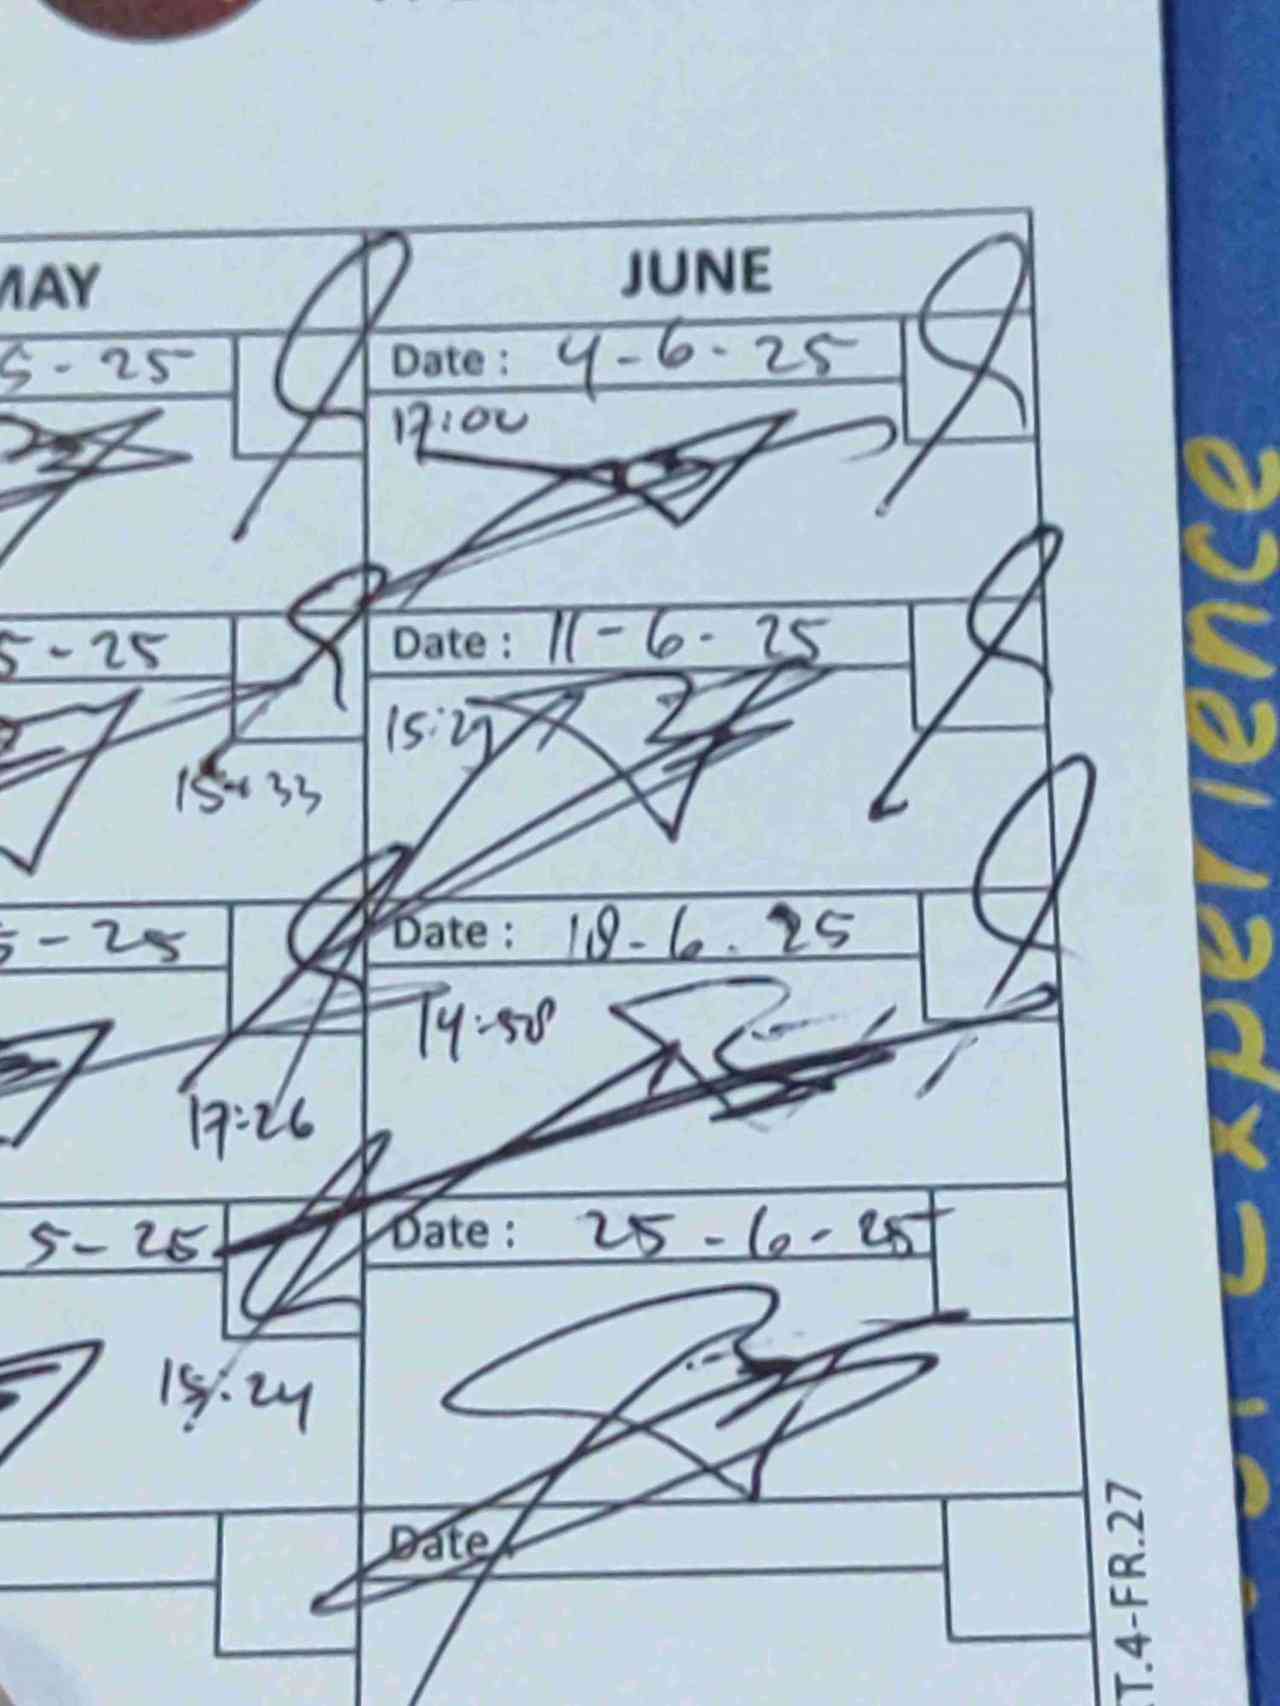 MAY
JUNE
5-25
Date: 4-6-25
17:00
5-25
Date: 11-6-25
15:33
15:29
5-25
Date: 18-6-25
14:58
17:26
5-25
Date: 25-6-25
15:24
Date
T.4-FR.27
Experience